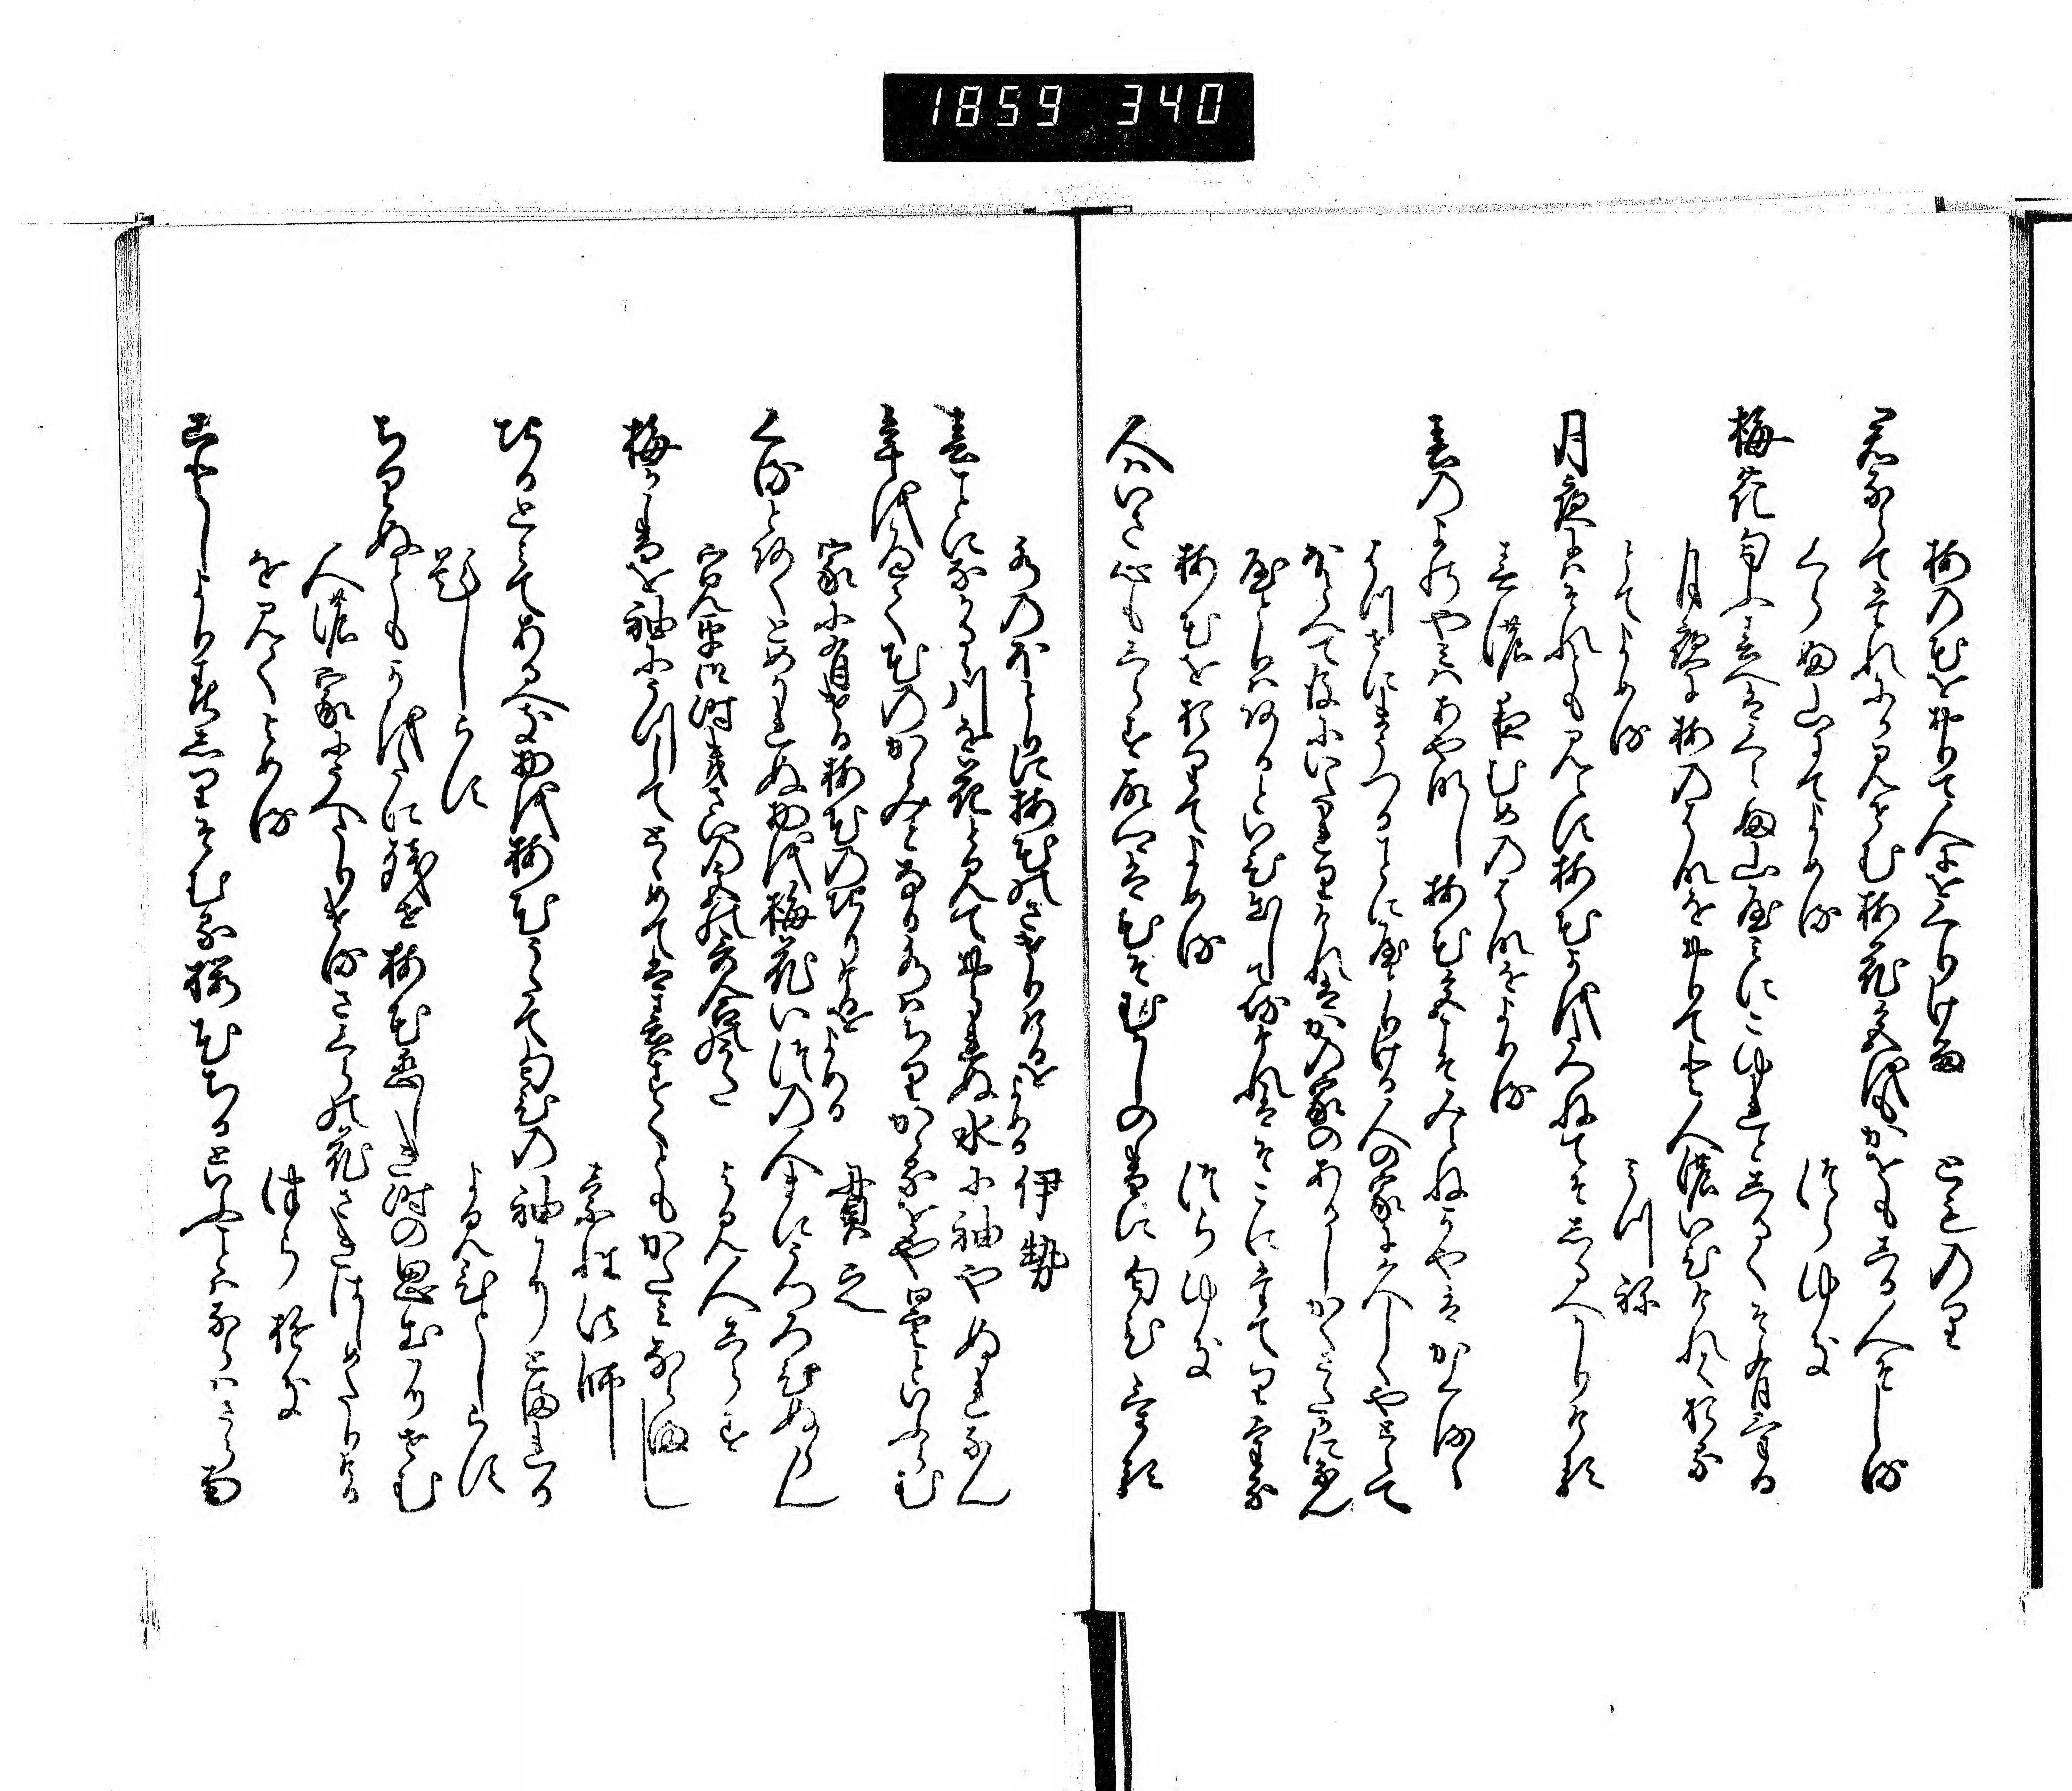 1859 340
梅の花をおりて人にをくりける とものり
君ならてたれにか見せむ梅花色をもかをもしる人そしる
くらふ山にてよめる つらゆき
梅花匂ふ春へはくらふ山やみにこゆれとしるくそ有ける
月夜に梅のはなをおりてと人のいひけれはおる
とてよめる みつね
月夜にはそれとも見えす梅花かをたつねてそしるへかりける
春の夜むめのはなをよめる
春のよのやみはあやなし梅花色こそみえねかやはかくるゝ
はつせにまうつることにやとりける人の家に久しくやとらて
ほとへて後にいたれりけれはかの家のあるしかくさたかになん
やとりはあるといひ出して侍けれはそこにたてりける
梅花をおりてよめる つらゆき
人はいさ心もしらす故郷は花そむかしの香に匂ひける
水のほとりに梅花のさけりけるをよめる 伊勢
春ことになかるゝ川を花と見ておられぬ水に袖やぬれなん
年をへて花のかゝみとなる水はちりかゝるをや曇といふらむ
家に有ける梅花のちりけるをよめる 貫之
くるとあくとめかれぬものを梅花いつの人まにうつろひぬらん
寛平御時きさいの宮の哥合哥 よみ人しらす
梅か香を袖にうつしてとゝめては春はすくともかたみならまし
素性法師
ちるとみてあるへき物を梅花うたて匂ひの袖にとまれる
題しらす よみ人しらす
ちりぬともかをたに残せ梅花恋しき時の思出にせむ
人の家にうへたりけるさくらの花さきはしめたりける
を見てよめる つらゆき
ことしより春しりそむる桜花ちるといふことはならはさらなむ